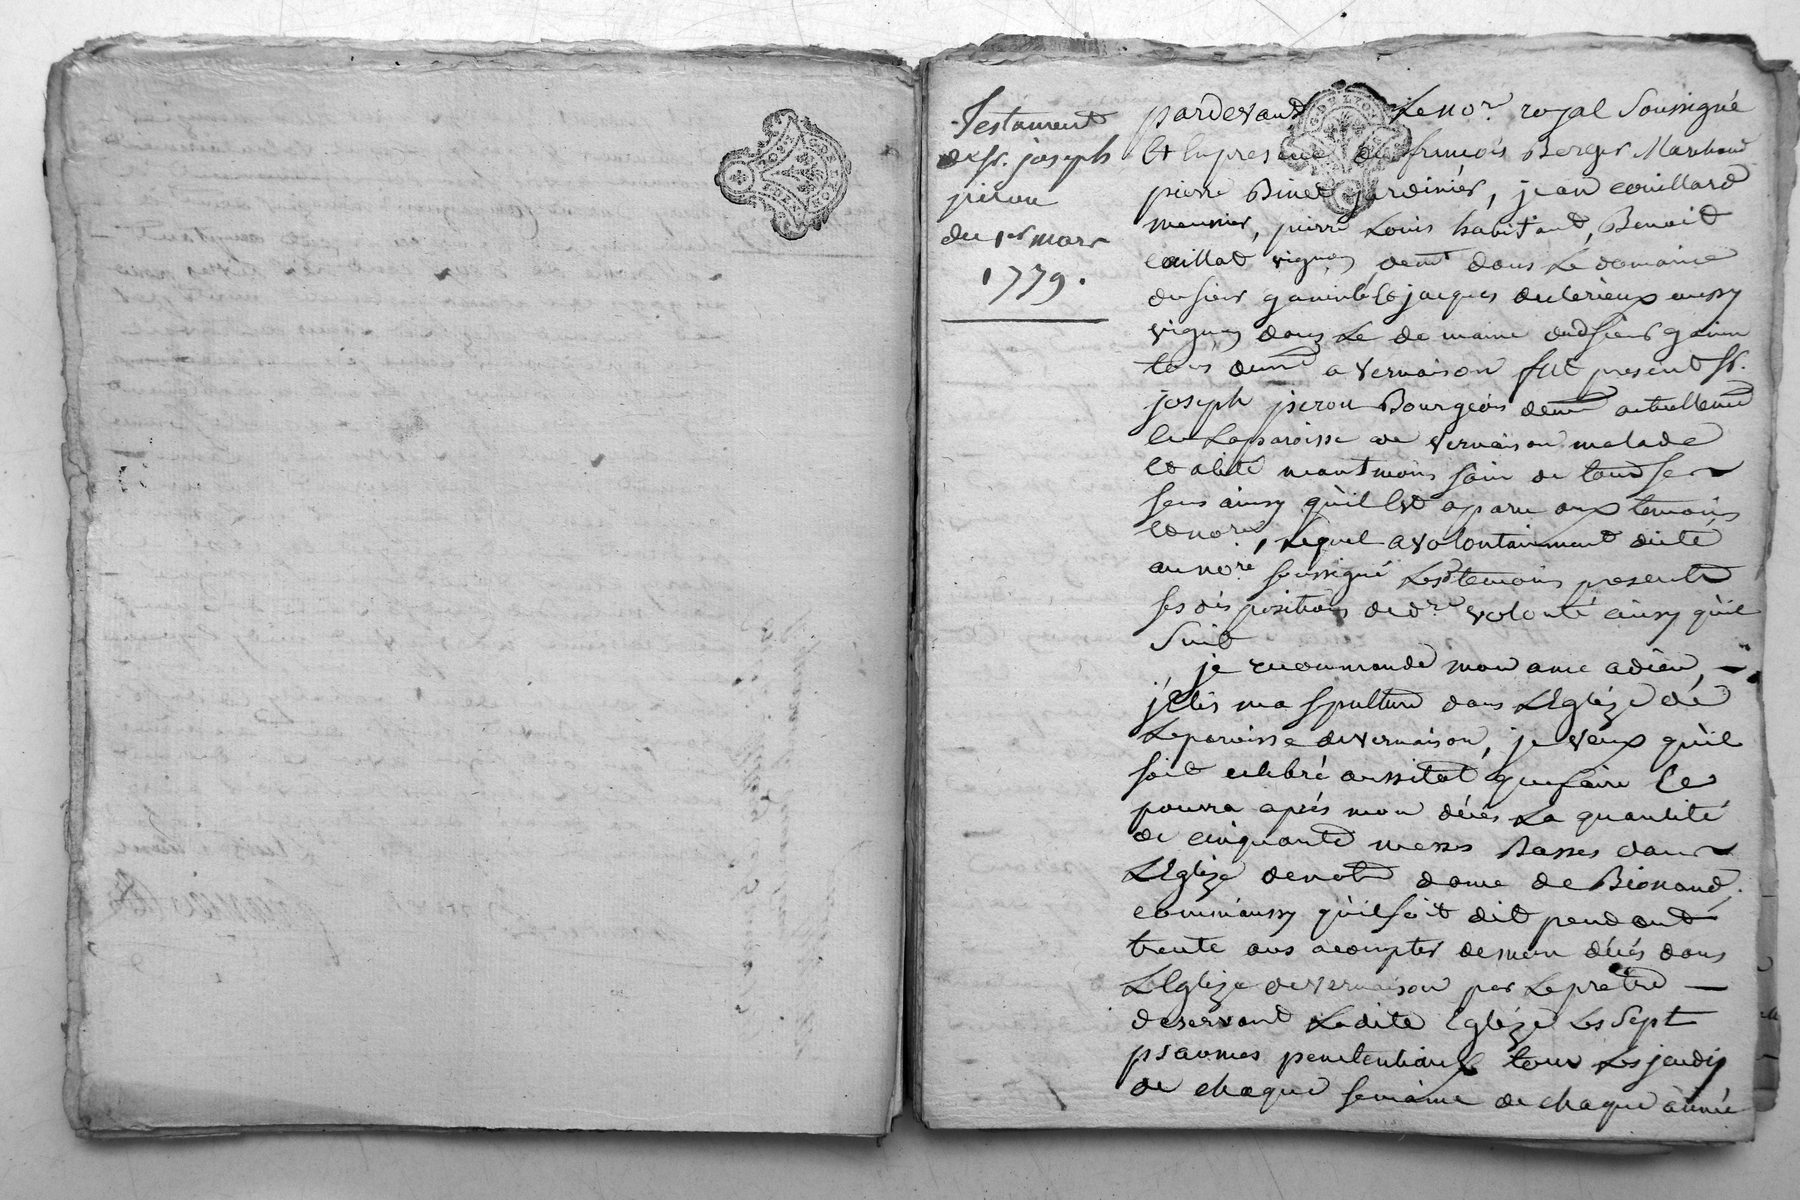 Testament
de Sr. joseph
pierou
du 1er mars
1779.
pardevant Le nore. royal Soussigné
Et En presence de françois Berger Marchand
pierre Binet jardinier, jean couillard
meunier, pierre Louis habitant, Benoit
caillat vignon demt dans Le domaine
du sieur & jacques aussy
vignon dans Le domaine dud sieur
tous demt a vernaison fut present Sr.
joseph pierou Bourgeois demt actuellemt
En La paroisse de vernaison malade
et alité neantmoins sain de tous ses
sens ainsy qu'il Est aparu aux temoins
et nore, Lequel a volontairement dicté
au nore soussigné Les temoins presents
ses dispositions de dre volonté ainsy qu'il
Suit
je recommande mon ame a dieu,
j'Elis ma sepulture dans L'Eglize de
La paroisse de vernaison, je veux qu'il
soit celebré aussitot que faire Ce
pourra aprés mon décés La quantité
de cinquante messes Basses dans
L'Eglize de notre dame de
comm'aussy qu'il soit dit pendant
trente ans a compter de mon décés dans
L'Eglize de vernaison par Le prêtre
deservant Ladite Eglize Les Sept
psaumes penitentiaux tous Les jeudis
de chaque semaine de chaque année